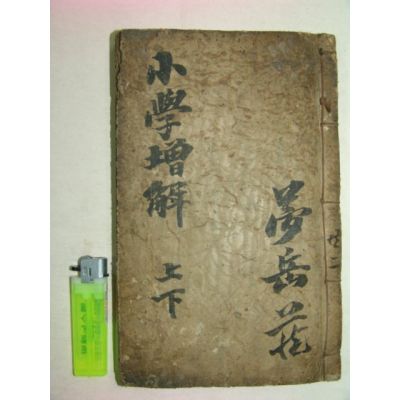 小學增解
上下
共二
夢岳莊